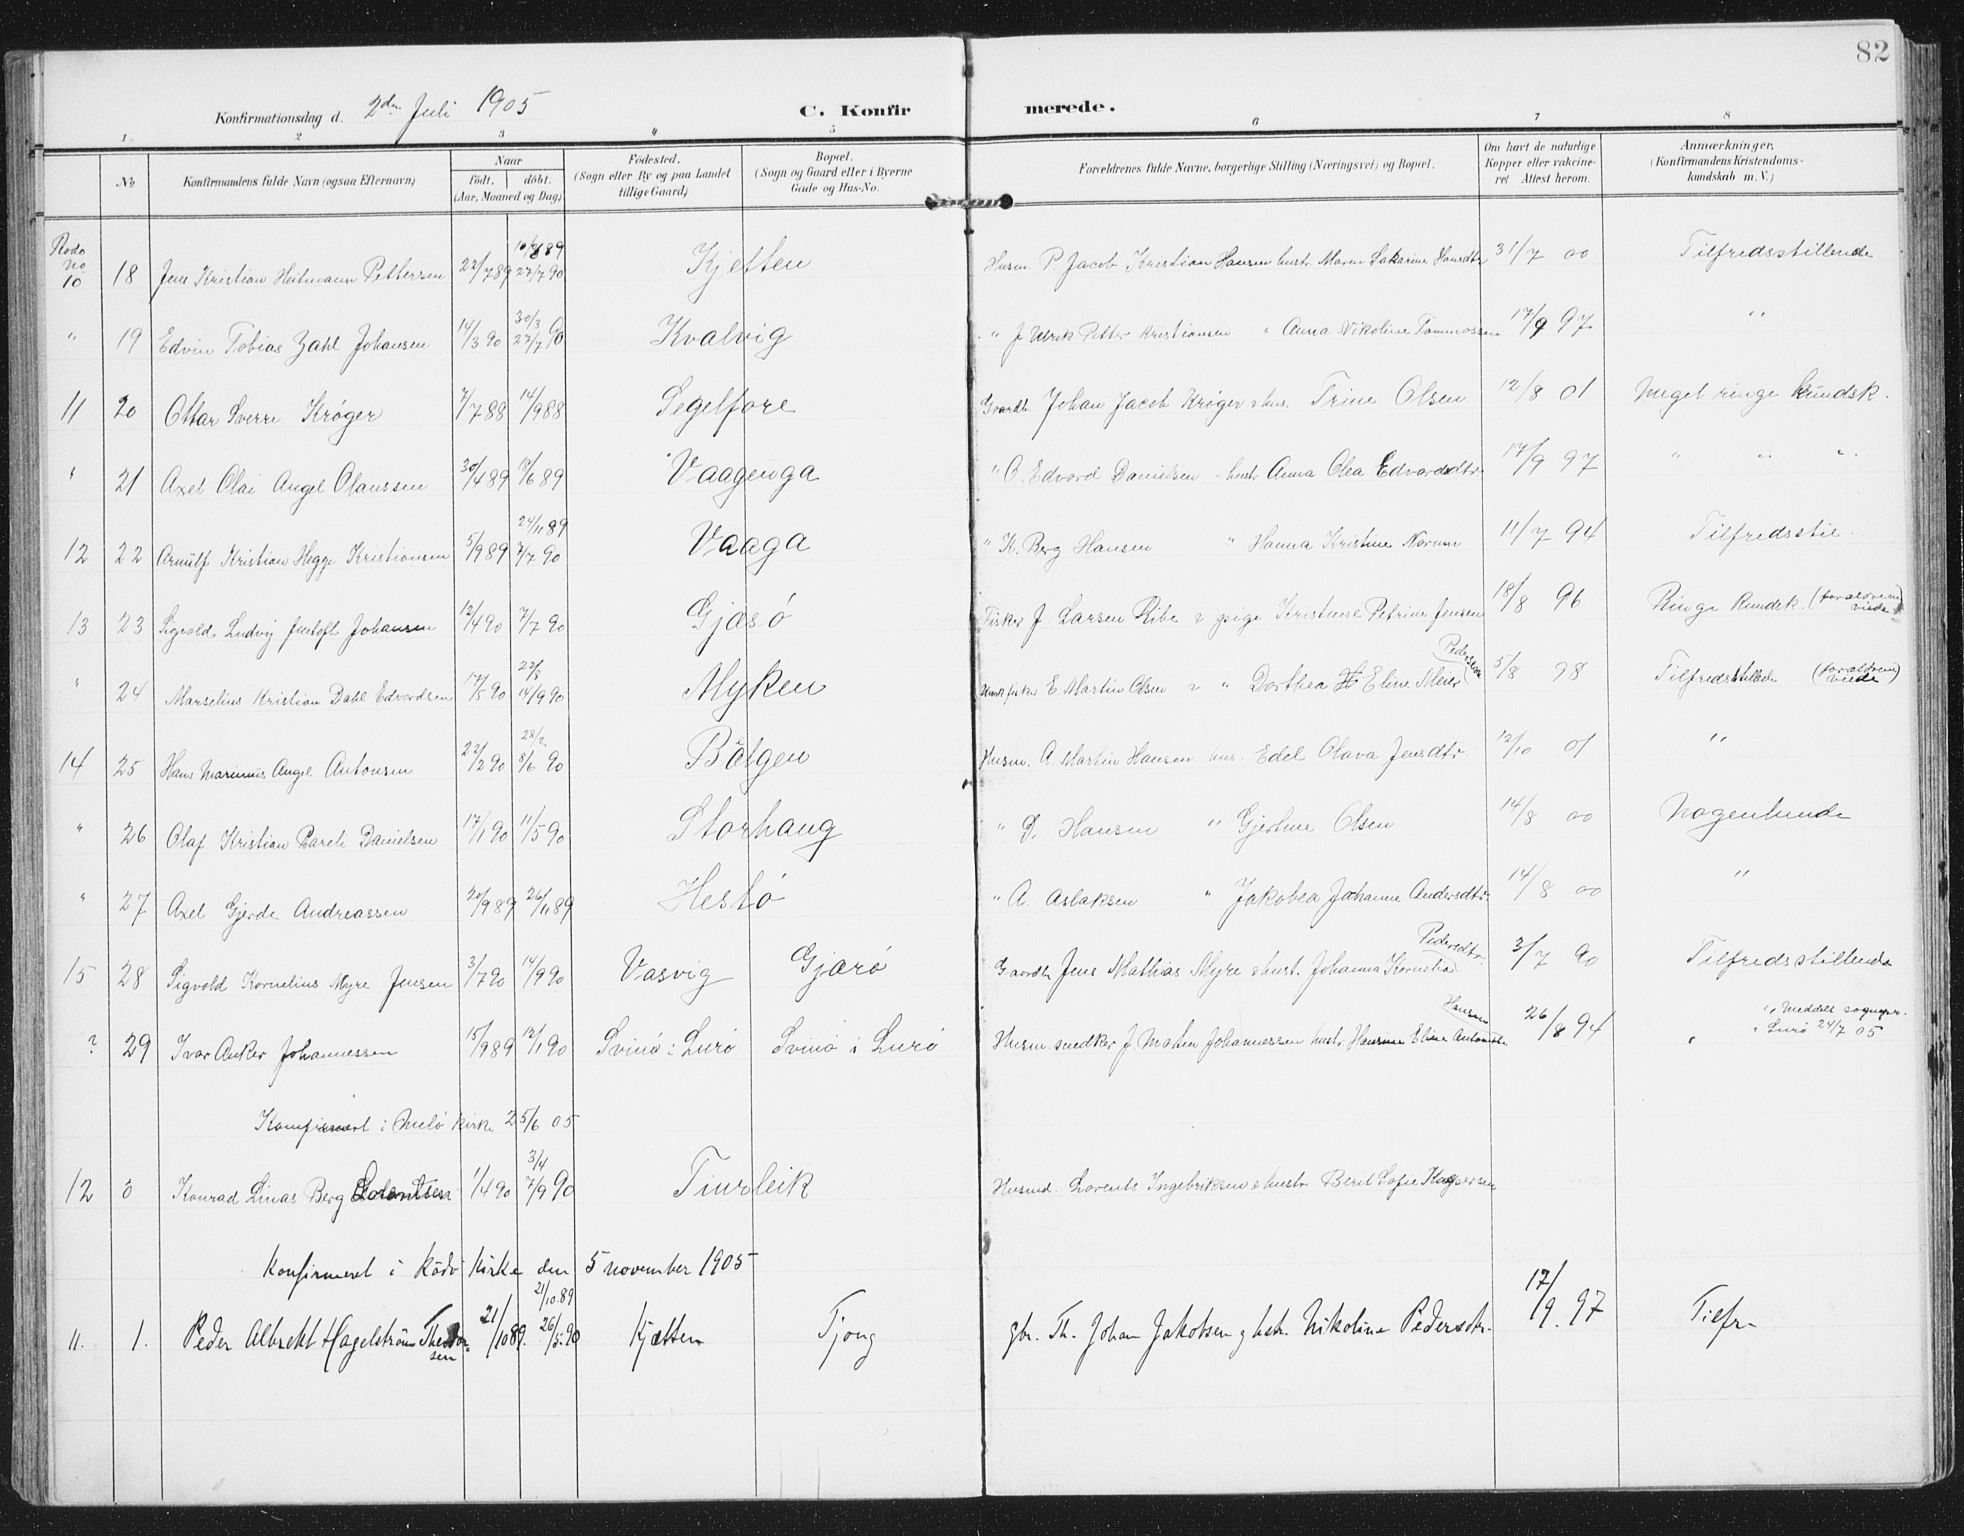 82
Konfirmationsdag d. 2den Juli 1905 C. Konfirmerede.
1. 2 3 4 5 6 7 8
No Konfirmandens fulde Navn (ogsaa Efternavn) Naar Födested. Bopæl. Forældrenes fulde Navne, borgerlige Stilling (Næringsvei) og Bopæl. Om havt de naturlige Anmærkninger.
födt. döbt. (Sogn eller By og paa Landet (Sogn og Gaard eller i Byerne Kopper eller vakcine- (Konfirmandens Kristendoms-
(Aar, Maaned og Dag) tillige Gaard) Gade og Hus-No. ret Attest herom. kundskab m. V.)
Rødø No 10 18 Jens Kristian Heitmann Pettersen 22/7 89 27/7 90 Kjeften Husm. P. Jacob Kristian Hansen hustr. Maren Zakarine Hansdtr 31/7 00 Tilfredsstillende
" 19 Edvin Tobias Zahl Johansen 14/3 90 30/3 27/7 90 Kvalvig " J. Ulrik Petter Kristiansen " Anna Nikoline Tommassen 17/9 97 "
11 20 Ottar Sverre Krøger 7/7 88 14/9 88 Segelfore Gaardb. Johan Jacob Krøger o hus. Trine Olsen 12/8 01 Meget ringe kundsk.
" 21 Axel Olai Angel Olaussen 30/4 89 /6 89 Vaagenga " O. Edvard Danielsen hustr Anna Olea Edvardsdtr 17/9 97 " " "
12 22 Arnulf Kristian Hegge Kristiansen 5/9 89 24/11 89 7/7 90 Vaaga " K. Berg Hansen " Hanna Kristine Norum 11/7 94 Tilfredsstil.
13 23 Sigvold Ludvig Johansen 12/4 90 7/7 90 Gjæsø Fisker J. Larsen Ribe pige Kristense Petrine Jensen 18/8 96 Ringe kundsk. (forældrene viede)
" 24 Marselius Kristian Dahl Edvardsen 17/5 90 22/8 14/9 90 Myken fisker E. Martin Olsen " Dorthea Eline Meier Pedersen 5/8 98 Tilfredsstillede (forældrene viede)
14 25 Hans Marinius Angel Antonsen 22/2 90 28/2 8/6 90 Bolgen Husm. A. Martin Hansen hus. Edel Olava Jensdtr. 12/10 01 "
" 26 Olaf Kristian Pareli Danielsen 17/1 90 11/5 90 Storhaug " D. Hansen " Gjertine Olsen 14/8 00 Nogenlunde
" 27 Axel Gjerde Andreassen 20/9 89 26/11 89 Hestø " A. Aslaksen " Jakobea Johanne Andersdtr. 14/8 00 "
15 28 Sigvold Kornelius Myre Jensen 3/7 90 14/9 90 Vasvig Gjærø Gaardb. Jens Mathias Myre o hust. Johanna Kornelia Pedersdtr. 3/7 90 Tilfredsstillende
? 29 Ivar Anker Johannessen 15/9 89 12/1 90 Svinø i Lurø Svinø i Lurø Husm snedker J. Matin Johannessen hustr. Hansine Eline Antonsdtr Hansen 26/8 94 " Meddelt sognepr. i Lurø 24/7 05
Konfirmert i Melö kirke 25/6 05
12 Konrad Linas Berg Lorentsen 1/4 90 3/4 7/9 90 Tinrleik Husmd. Lorents Ingebriksen o hustr Berit Sofie Kaspersen
Konfirmeret i Rödö Kirke den 5 november 1905
11. 1. Peder Albrekt Hagelström Theodorsen 21/10 89. 21/10.89 26/5.90 Kjætten Tjong gbr. Th. Johan Jakobsen g hstr. Nikoline Pedersdtr. 17/9. 97 Tilfr.